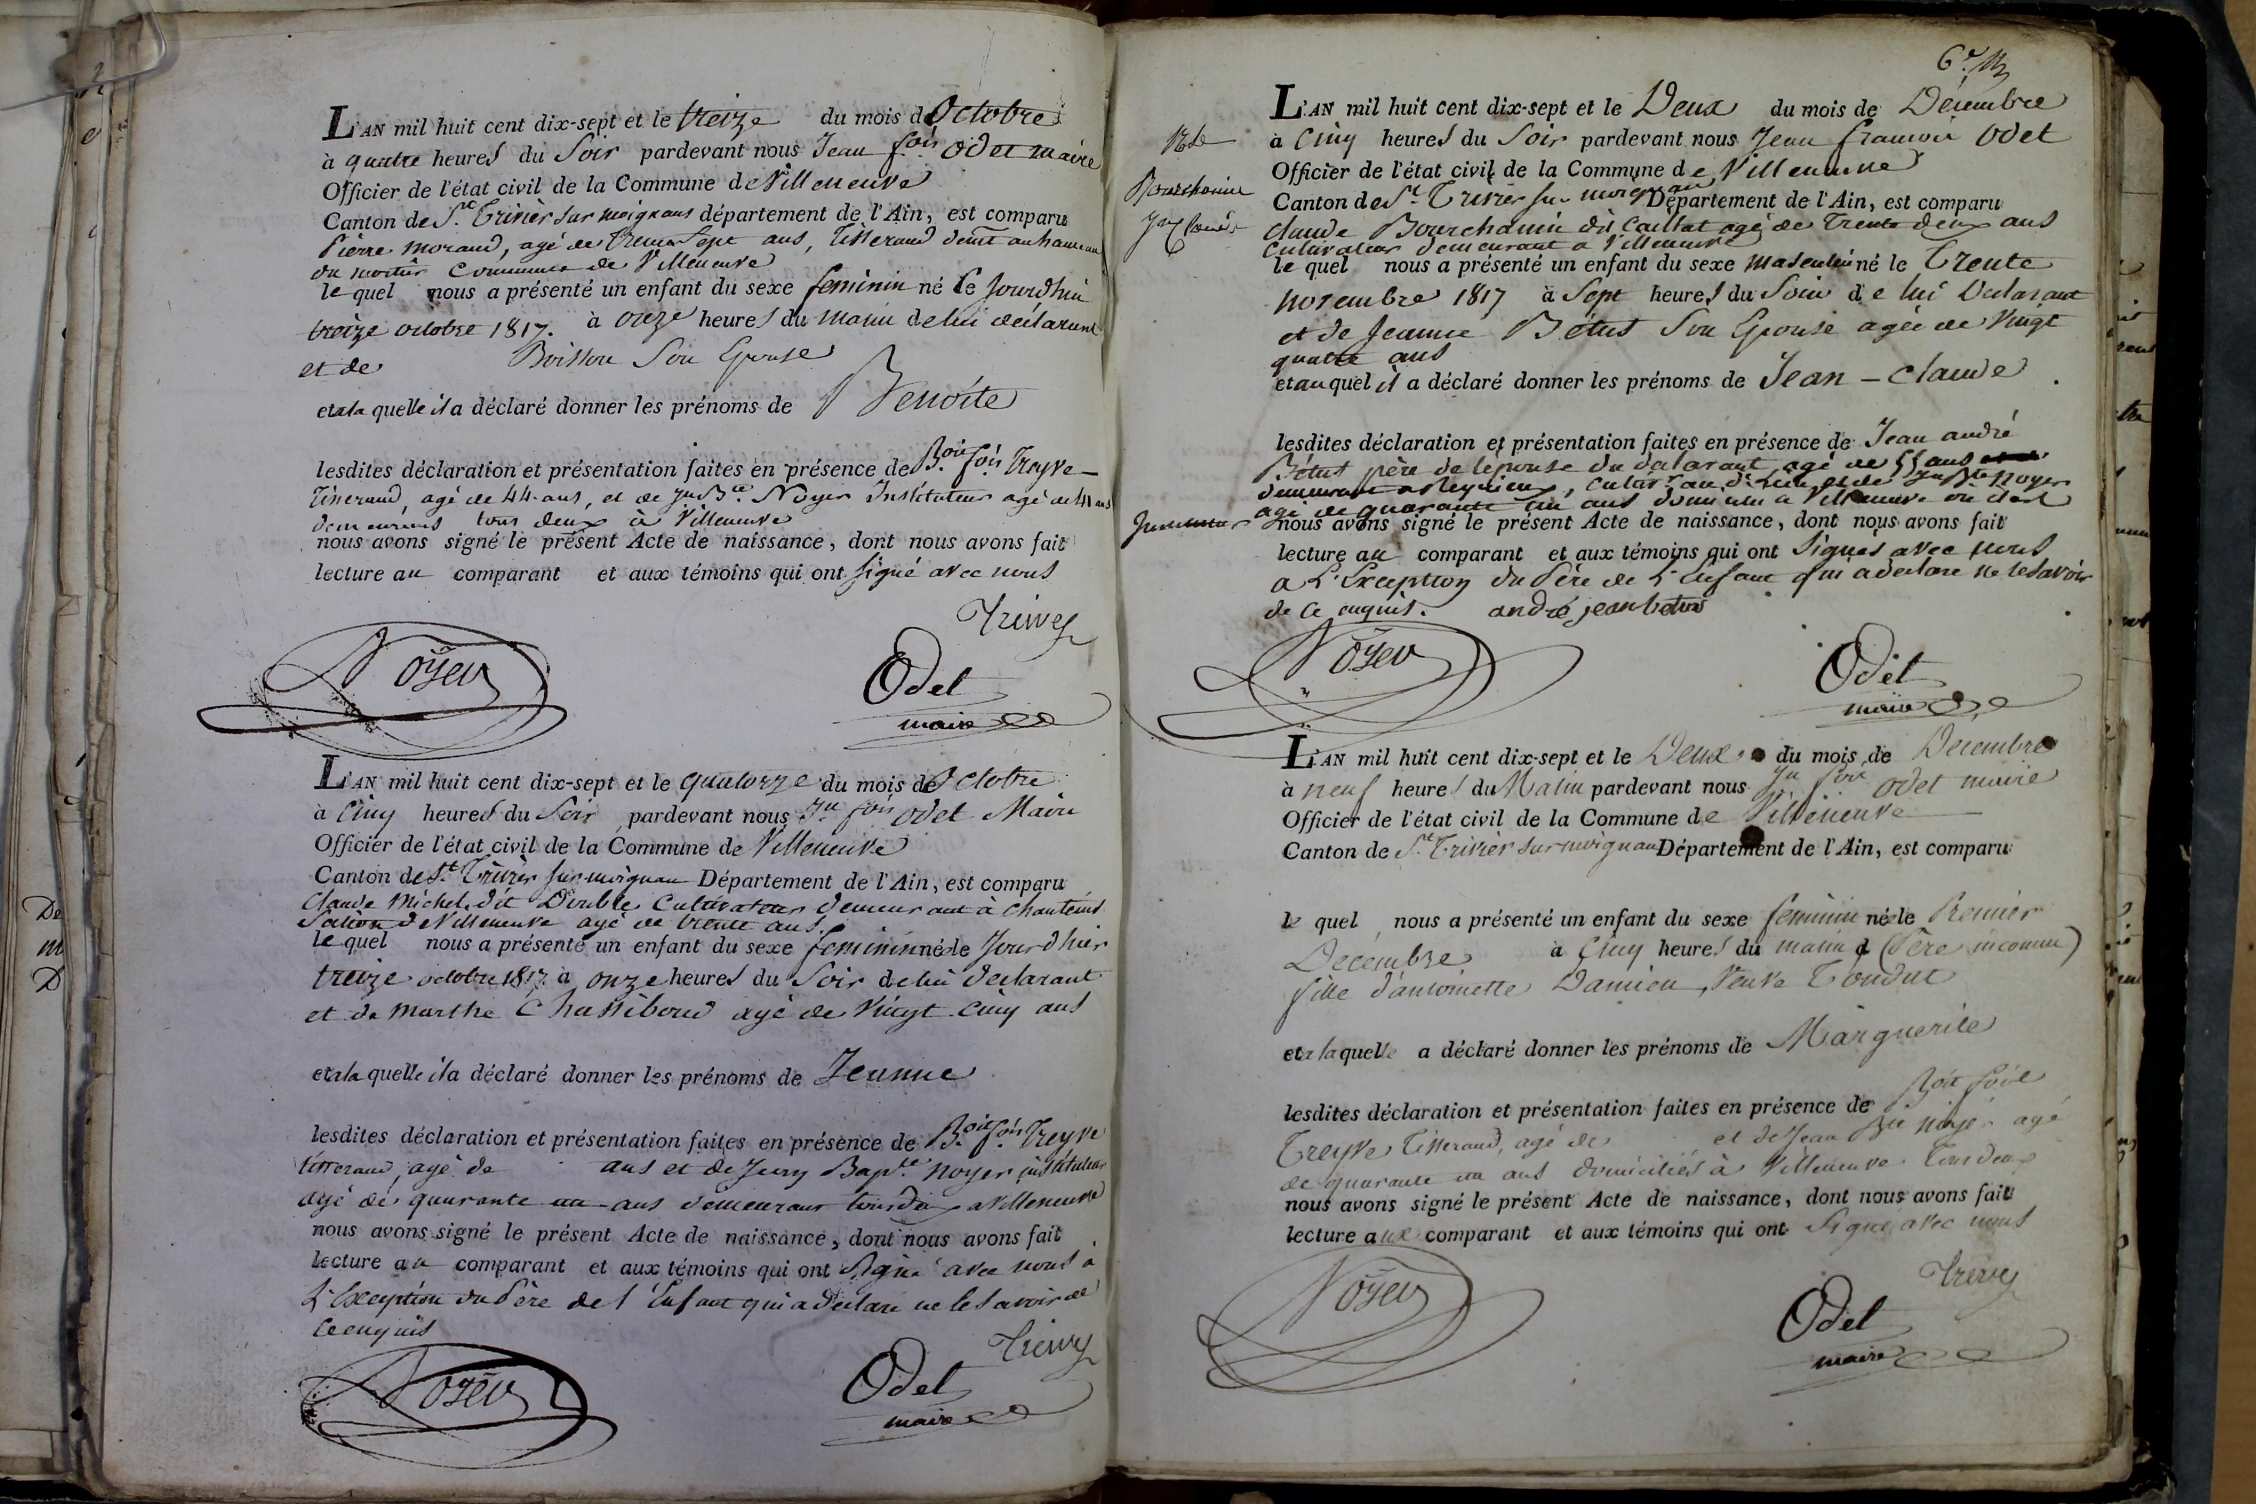 L'AN mil huit cent dix-sept et le treize du mois d'Octobre
à quatre heures du Soir pardevant nous Jean fois Odet maire
Officier de l'état civil de la Commune de Villeneuve
Canton de St Trivier sur moignans département de l'Ain, est comparu
Pierre morand, agé de trente Sept ans, Tisserand demt au hameau
du Commune de Villeneuve
le quel nous a présenté un enfant du sexe feminin né le Jourdhui
treize octobre 1817. à onze heures du matin de lui déclarant
et de Boisson Son Epouse
et a la quelle il a déclaré donner les prénoms de Benoite
lesdites déclaration et présentation faites en présence de Boit fois Treyve
Tisserand, agé de 44 ans, et de Jn Bte Noyer Instituteur agé de 41 ans
demeurans tous deux à Villeneuve
nous avons signé le présent Acte de naissance, dont nous avons fait
lecture au comparant et aux témoins qui ont signé avec nous
Treives
Noyer
Odet
maire
L'AN mil huit cent dix-sept et le quatorze du mois d'Octobre
à Cinq heures du Soir pardevant nous Jn fois Odet Maire
Officier de l'état civil de la Commune de Villeneuve
Canton de St Trivier sur moignan Département de l'Ain, est comparu
Claude Michel dit Double Cultivateur demeurant à Chanteins
Section de Villeneuve agé de trente ans
le quel nous a présenté un enfant du sexe feminin né le Jour d hier
treize octobre 1817 à onze heures du Soir de lui declarant
et de marthe Chassiboud agé de Vingt Cinq ans
et a la quelle il a déclaré donner les prénoms de Jeanne
lesdites déclaration et présentation faites en présence de Boit fois Treyve
tisserand, agé de ans et de Jean Bapte noyer instituteur
agé de quarante un ans demeurant tous deux a Villeneuve
nous avons signé le présent Acte de naissance, dont nous avons fait
lecture au comparant et aux témoins qui ont Signé avec nous à
L'Exception du Père de l'Enfant qui a declaré ne le Savoir de
ce enquis
Treives
Noyer
Odet
maire
6e
L'AN mil huit cent dix-sept et le Deux du mois de Décembre
à Cinq heures du Soir pardevant nous Jean francois Odet
Officier de l'état civil de la Commune de Villeneuve
Bourchanin
Canton de St Trivier sur moignan Département de l'Ain, est comparu
Jn Claude
Claude Bourchanin dit Caillat agé de Trente deux ans
Cultivateur demeurant a Villeneuve
le quel nous a présenté un enfant du sexe masculin né le Trente
novembre 1817 à Sept heures du Soir de lui Déclarant
et de Jeanne Bétus Son Epouse agée de Vingt
quatre ans
et au quel il a déclaré donner les prénoms de Jean - Claude
lesdites déclaration et présentation faites en présence de Jean andré
Bétus père de lépouse du déclarant agé de 55 ans
demeurant a , cultivr au dt lieu et de Jn Bte noyer
agé de quarante un ans domicilié a Villeneuve où il est
nous avons signé le présent Acte de naissance, dont nous avons fait
lecture au comparant et aux témoins qui ont Signés avec nous
a L'Exception du Père de L'Enfant qui a declaré ne le savoir
de ce enquis. andré jean betus
Noyer
Odet
maire
L'AN mil huit cent dix-sept et le Deux du mois de Décembre
à neuf heures du Matin pardevant nous Jn fois Odet maire
Officier de l'état civil de la Commune de Villeneuve
Canton de St Trivier sur moignan Département de l'Ain, est comparu
le quel nous a présenté un enfant du sexe feminin né le Premier
Decembre à Cinq heures du matin d (Père inconnu)
fille d'antoinette Damien, Veuve Tondut
et a la quelle a déclaré donner les prénoms de Marguerite
lesdites déclaration et présentation faites en présence de Boit fois
Treyve Tisserand, agé de et de Jean Bte noyer agé
de quarante un ans domiciliés à Villeneuve Tous deux
nous avons signé le présent Acte de naissance, dont nous avons fait
lecture aux comparant et aux témoins qui ont Signé avec nous
Treives
Noyer
Odet
maire